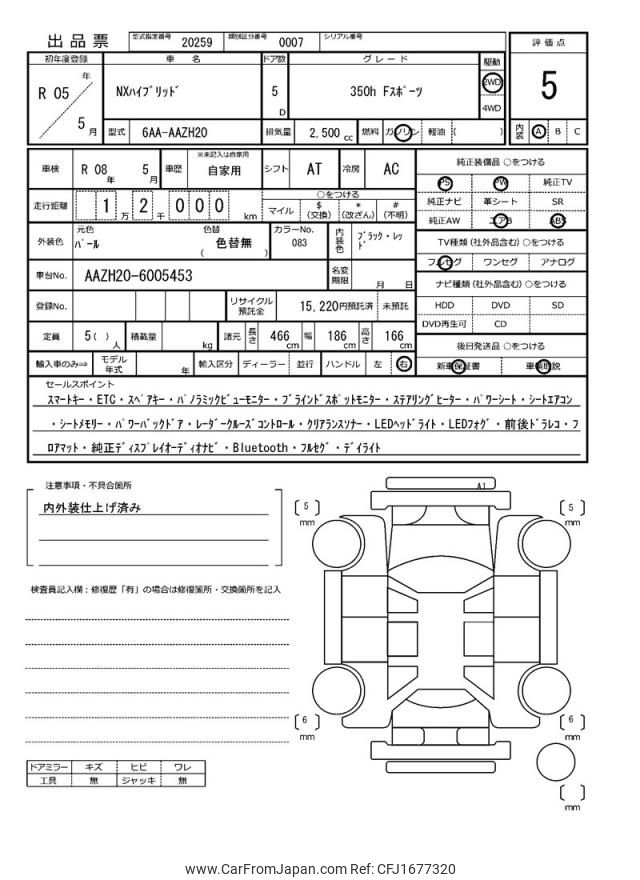 出品票 型式指定番号 20259 類別区分番号 0007 シリアル番号
評価点
5
内装 A B C
初年度登録 車名 ドア数 グレード 駆動
R 05 年 5 月 NXハイブリッド 5 D 350h Fスポーツ 2WD 4WD
型式 6AA-AAZH20 排気量 2,500 cc 燃料 ガソリン 軽油 ( )
車検 R 08 年 5 月 車歴 ※未記入は自家用 自家用 シフト AT 冷房 AC
走行距離 1 万 2 千 0 0 0 km ○をつける
マイル $ (交換) * (改ざん) # (不明)
外装色 元色 パール 色替 色替無 ( ) カラーNo. 083 内装色 ブラック・レッド
車台No. AAZH20-6005453 名変期限 月 日
登録No. リサイクル預託金 15,220円預託済 未預託
定員 5( ) 人 積載量 kg 諸元 長さ 466 cm 幅 186 cm 高さ 166 cm
輸入車のみ⇒ モデル年式 年 輸入区分 ディーラー 並行 ハンドル 左 右
純正装備品 ○をつける
PS PW 純正TV
純正ナビ 革シート SR
純正AW エアB ABS
TV種類(社外品含む)○をつける
フルセグ ワンセグ アナログ
ナビ種類(社外品含む)○をつける
HDD DVD SD
DVD再生可 CD
後日発送品 ○をつける
新車保証書 車輌取説
セールスポイント
スマートキー・ETC・スペアキー・パノラミックビューモニター・ブラインドスポットモニター・ステアリングヒーター・パワーシート・シートエアコン
・シートメモリー・パワーバックドア・レーダークルーズコントロール・クリアランスソナー・LEDヘッドライト・LEDフォグ・前後ドラレコ・フ
ロアマット・純正ディスプレイオーディオナビ・Bluetooth・フルセグ・デイライト
注意事項・不具合箇所
内外装仕上げ済み
検査員記入欄：修復歴「有」の場合は修復箇所・交換箇所を記入
A1
[ 5 ] mm
[ 5 ] mm
[ 6 ] mm
[ 6 ] mm
[ ] mm
ドアミラー キズ ヒビ ワレ
工具 無 ジャッキ 無
www.CarFromJapan.com Ref: CFJ1677320